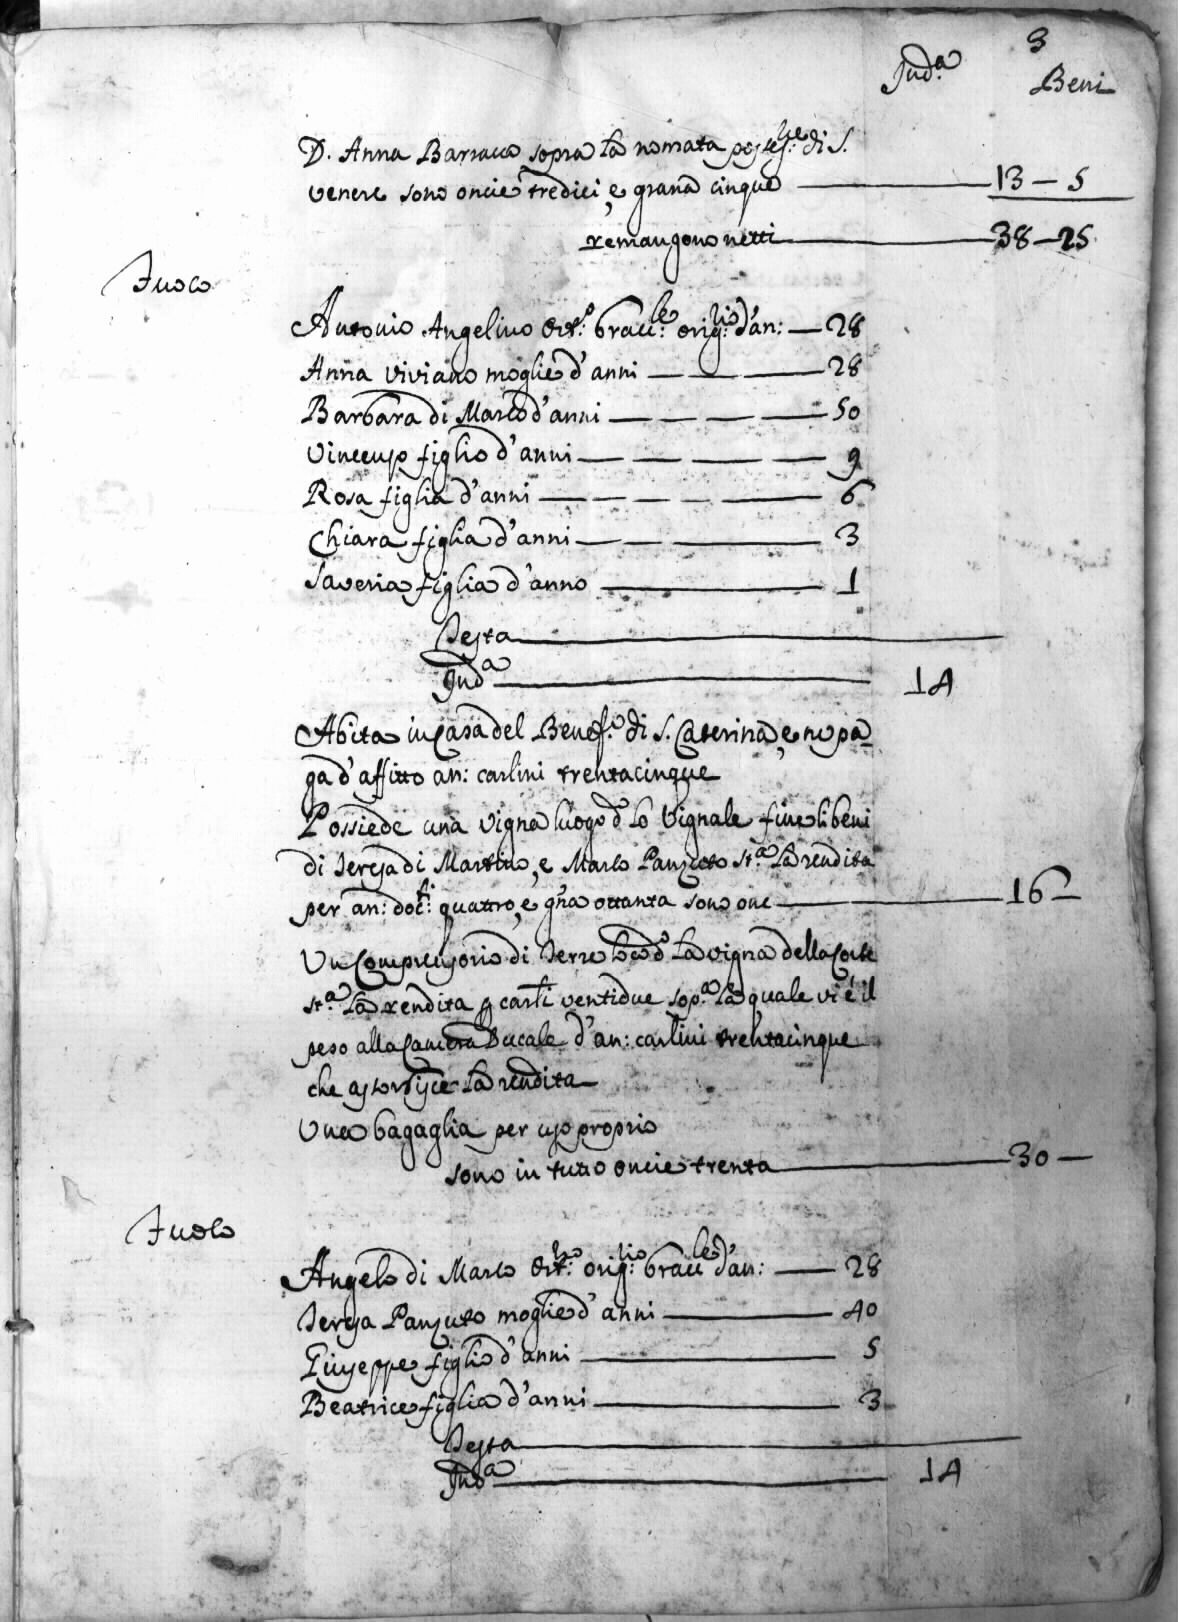 3
Ind.ª Beni
D. Anna Barracco sopra la nomata possess.ne di S.
Venere sono oncie tredici, e grana cinque 13 - 5
remangono netti 38 - 25
Fuoco
Antonio Angelino Ort.º bracc.le orig.rio d'an: 28
Anna Viviano moglie d'anni 28
Barbara di Marco d'anni 50
Vincenzo figlio d'anni 9
Rosa figlia d'anni 6
Chiara figlia d'anni 3
Saveria figlia d'anno 1
Testa
Ind.ª 14
Abita in Casa del Benef.º di S. Caterina, e ne pa-
ga d'affitto an: carlini trentacinque
Possiede una vigna luogo d.º lo Vignale fine li beni
di Teresa di Martino, e Marco Panzuto st.ª la rendita
per an: doc.ti quattro, e gna ottanta sono onc 16 -
Un Comprensorio di Terre loco d.º la vigna della Corte
st.ª la rendita p carli ventidue sop.ª la quale vi è il
peso alla Camera Ducale d'an: carlini trentacinque
che assorbisce la rendita
Una bagaglia per uso proprio
sono in tutto oncie trenta 30 -
Fuoco
Angelo di Marco Ort.no orig.rio bracc.le d'an: 28
Teresa Panzuto moglie d'anni 40
Giuseppe figlio d'anni 5
Beatrice figlia d'anni 3
Testa
Ind.ª 14